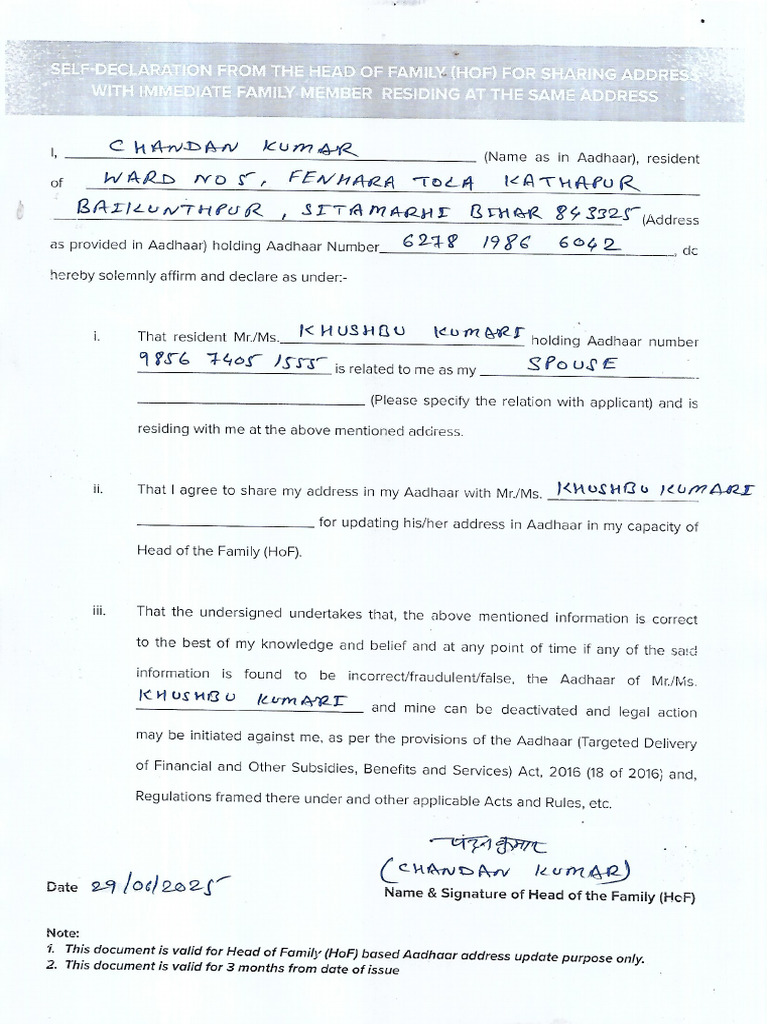 SELF-DECLARATION FROM THE HEAD OF FAMILY (HOF) FOR SHARING ADDRESS
WITH IMMEDIATE FAMILY MEMBER RESIDING AT THE SAME ADDRESS
I, CHANDAN KUMAR (Name as in Aadhaar), resident
of WARD NO 5, FENHARA TOLA KATHAPUR
BAIKUNTHPUR, SITAMARHI BIHAR 843325 (Address
as provided in Aadhaar) holding Aadhaar Number 6278 1986 6042, dc
hereby solemnly affirm and declare as under:-
i. That resident Mr./Ms. KHUSHBU KUMARI holding Aadhaar number
9856 7405 1555 is related to me as my SPOUSE
(Please specify the relation with applicant) and is
residing with me at the above mentioned address.
ii. That I agree to share my address in my Aadhaar with Mr./Ms. KHUSHBU KUMARI
for updating his/her address in Aadhaar in my capacity of
Head of the Family (HoF).
iii. That the undersigned undertakes that, the above mentioned information is correct
to the best of my knowledge and belief and at any point of time if any of the said
information is found to be incorrect/fraudulent/false, the Aadhaar of Mr./Ms.
KHUSHBU KUMARI and mine can be deactivated and legal action
may be initiated against me, as per the provisions of the Aadhaar (Targeted Delivery
of Financial and Other Subsidies, Benefits and Services) Act, 2016 (18 of 2016) and,
Regulations framed there under and other applicable Acts and Rules, etc.
चंदन कुमार
(CHANDAN KUMAR)
Date 29/06/2025
Name & Signature of Head of the Family (HoF)
Note:
1. This document is valid for Head of Family (HoF) based Aadhaar address update purpose only.
2. This document is valid for 3 months from date of issue